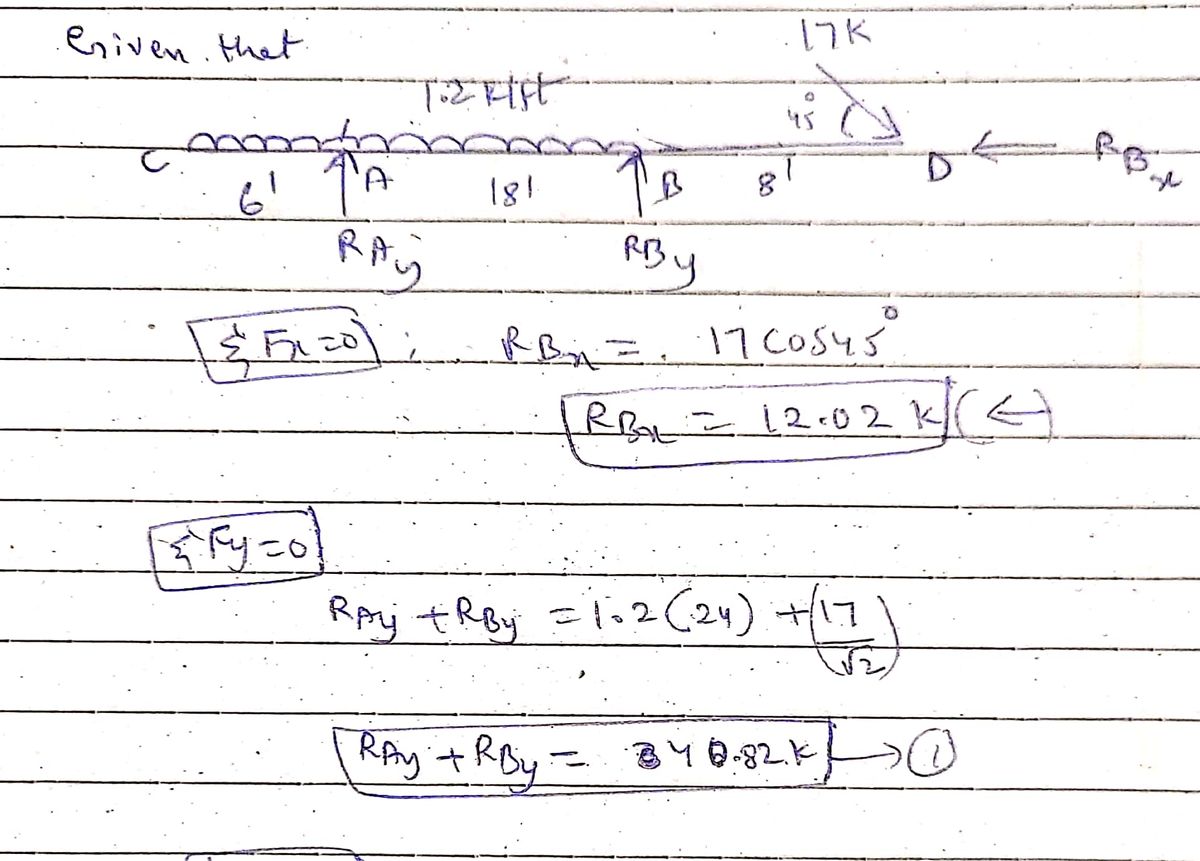 Given that
17K
1.2 K/ft
45°
C
A
B
D
R Bx
6'
18'
8'
RAy
RBy
ΣFx=0 ; RBx = 17 COS45°
RBx = 12.02 K (←)
ΣFy=0
RAy + RBy = 1.2(24) + (17/√2)
RAy + RBy = 40.82 K → ①